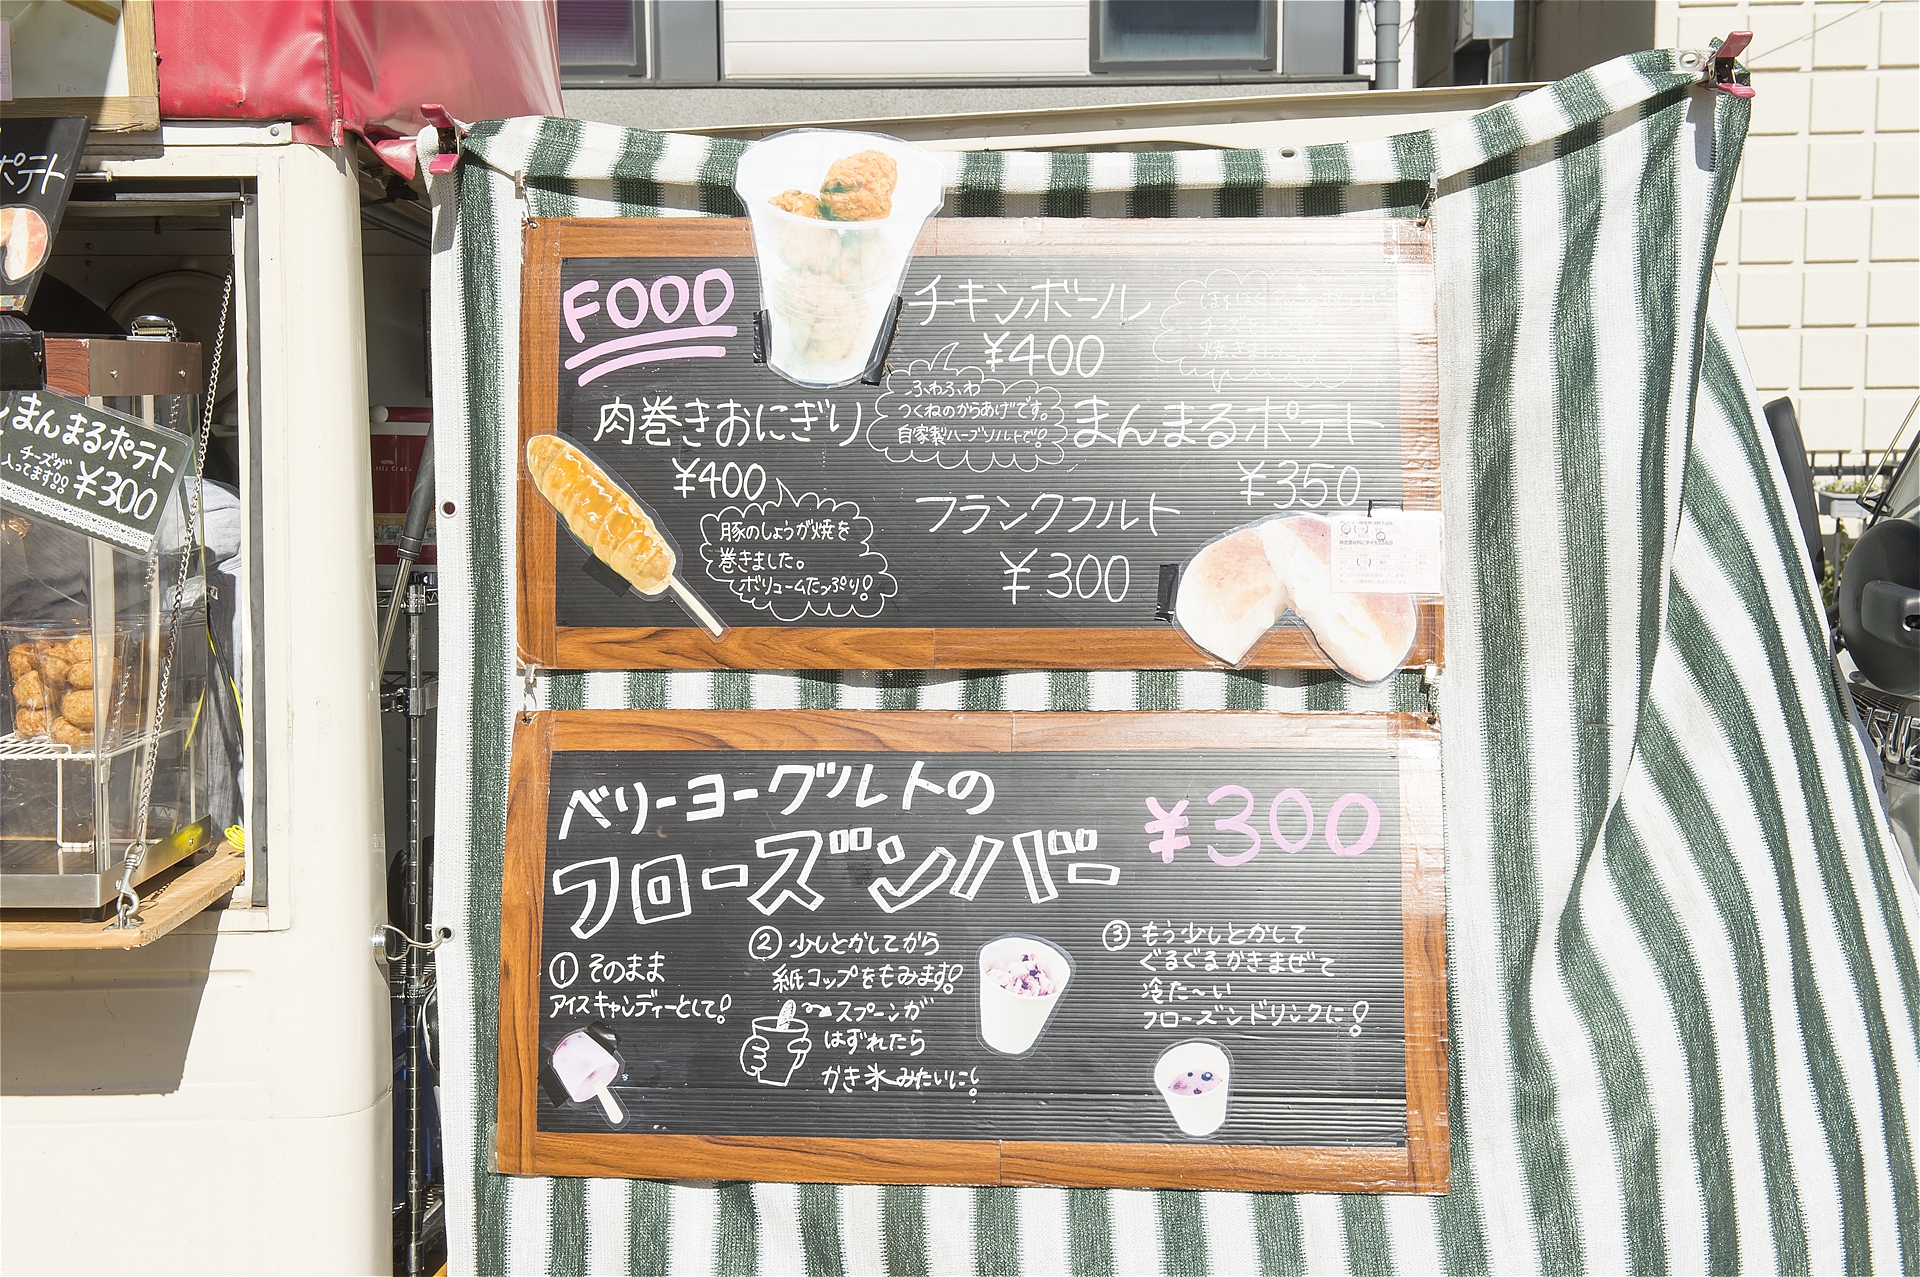 ポテト
まんまるポテト
チーズが
入ってます!!
¥300
FOOD
チキンボール
¥400
ふわふわ
つくねのからあげです。
自家製ハーブソルトで!
肉巻きおにぎり
¥400
豚のしょうが焼を
巻きました。
ボリュームたっぷり!
まんまるポテト
¥350
チーズ
焼きました
フランクフルト
¥300
ベリーヨーグルトの
フローズンバー
¥300
① そのまま
アイスキャンディーとして!
② 少しとかしてから
紙コップをもみます!
スプーンが
はずれたら
かき氷みたいに!
③ もう少しとかして
ぐるぐるかきまぜて
冷た〜い
フローズンドリンクに!